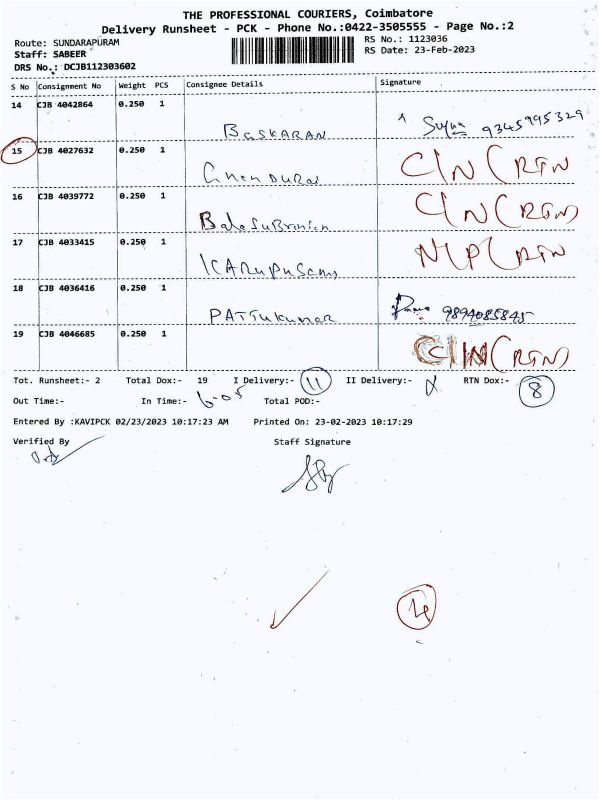 THE PROFESSIONAL COURIERS, Coimbatore
Delivery Runsheet - PCK - Phone No.:0422-3505555 - Page No.:2
Route: SUNDARAPURAM
RS No.: 1123036
Staff: SABEER
RS Date: 23-Feb-2023
DRS No.: DCJB112303602
S No Consignment No Weight PCS Consignee Details Signature
14 CJB 4042864 0.250 1
BASKARAN 9345995329
15 CJB 4027632 0.250 1 C/N (RTN
16 CJB 4039772 0.250 1 C/N (RTN)
17 CJB 4033415 0.250 1 N/P (RTN
KARUPUSamy
18 CJB 4036416 0.250 1
PATTUKumar 9894085845
19 CJB 4046685 0.250 1 C/N (RTN)
Tot. Runsheet:- 2 Total Dox:- 19 I Delivery:- 11 II Delivery:- RTN Dox:- 8
Out Time:- In Time:- 6-05 Total POD:-
Entered By :KAVIPCK 02/23/2023 10:17:23 AM Printed On: 23-02-2023 10:17:29
Verified By Staff Signature